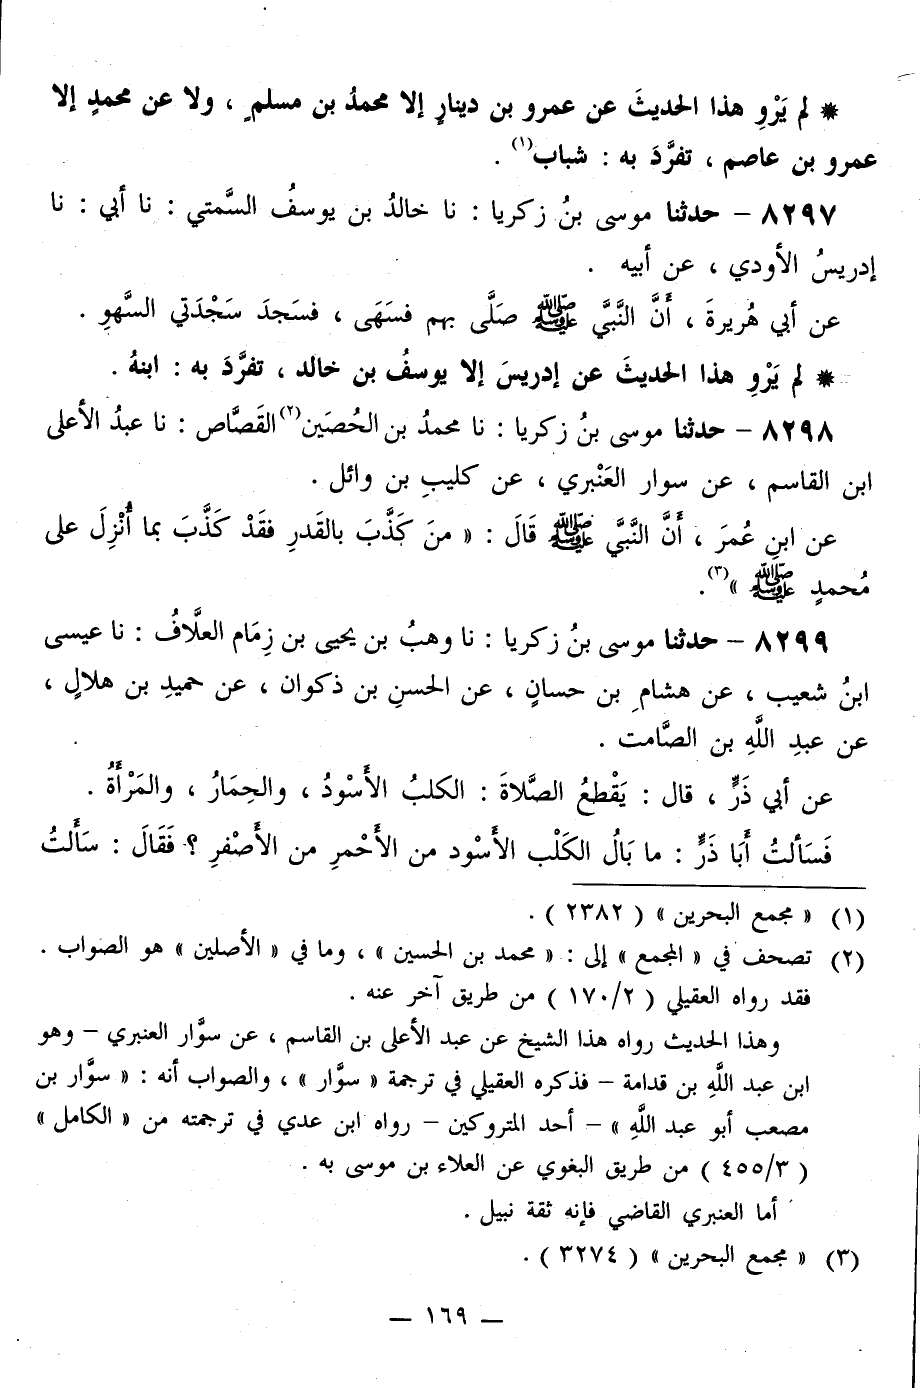 * لم يَرْوِ هذا الحديثَ عن عمرو بن دينارٍ إلا محمدُ بن مسلمٍ ، ولا عن محمدٍ إلا
عمرو بن عاصم ، تفرَّدَ به : شباب(١) .
٨٢٩٧ – حدثنا موسى بنُ زكريا : نا خالدُ بن يوسفُ السَّمتي : نا أبي : نا
إدريسُ الأودي ، عن أبيه .
عن أبي هُريرةَ ، أَنَّ النَّبيَّ ﷺ صَلَّى بهم فسَهَى ، فسَجدَ سَجْدَتي السَّهوِ .
* لم يَرْوِ هذا الحديثَ عن إدريسَ إلا يوسفُ بن خالد ، تفرَّدَ به : ابنهُ .
٨٢٩٨ – حدثنا موسى بنُ زكريا : نا محمدُ بن الحُصَين(٢) القَصَّاص : نا عبدُ الأعلى
ابن القاسم ، عن سوار العَنْبري ، عن كليبِ بن وائل .
عن ابنِ عُمرَ ، أَنَّ النَّبيَّ ﷺ قَالَ : « منَ كَذَّبَ بالقَدرِ فقَدْ كَذَّبَ بما أُنْزِلَ على
مُحمدٍ ﷺ »(٣).
٨٢٩٩ – حدثنا موسى بنُ زكريا : نا وهبُ بن يحيى بن زِمَام العلَّافُ : نا عيسى
ابنُ شعيب ، عن هشامِ بن حسانٍ ، عن الحسنِ بن ذكوان ، عن حميدِ بن هلالٍ ،
عن عبدِ اللَّهِ بن الصَّامت .
عن أبي ذَرٍّ ، قال : يَقْطعُ الصَّلاةَ : الكلبُ الأَسْودُ ، والحِمَارُ ، والمَرْأَةُ .
فَسَألتُ أَبَا ذَرٍّ : ما بَالُ الكَلْب الأَسْود من الأَحْمرِ من الأَصْفرِ ؟ فَقَالَ : سَأَلتُ
(١) « مجمع البحرين » ( ٢٣٨٢ ) .
(٢) تصحف في « المجمع » إلى : « محمد بن الحسين » ، وما في « الأصلين » هو الصواب .
فقد رواه العقيلي ( ١٧٠/٢ ) من طريق آخر عنه .
وهذا الحديث رواه هذا الشيخ عن عبد الأعلى بن القاسم ، عن سوَّار العنبري – وهو
ابن عبد اللَّهِ بن قدامة – فذكره العقيلي في ترجمة « سوَّار » ، والصواب أنه : « سوَّار بن
مصعب أبو عبد اللَّهِ » – أحد المتروكين – رواه ابن عدي في ترجمته من « الكامل »
( ٤٥٥/٣ ) من طريق البغوي عن العلاء بن موسى به .
أما العنبري القاضي فإنه ثقة نبيل .
(٣) « مجمع البحرين » ( ٣٢٧٤ ) .
— ١٦٩ —